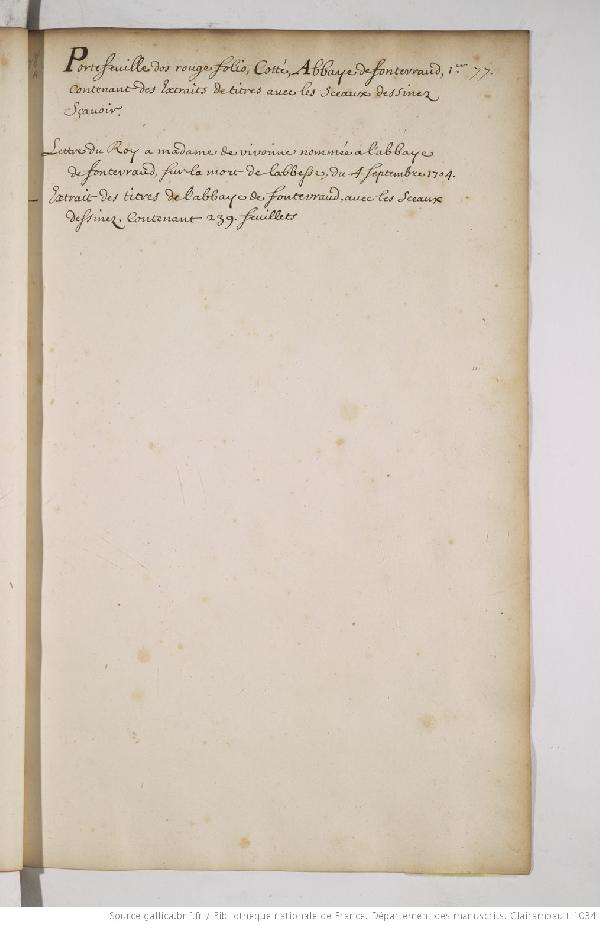 Portefeuille dos rouge folio, Cotté, Abbaye de fontevraud, 1.er 77.
Contenant des Extraits de titres avec les Sceaux dessinez
Sçavoir.
Lettre du Roy a madame de vivonne nommée a l'abbaye
de fontevraud, sur la mort de l'abbesse, du 4 septembre 1704.
Extrait des titres de l'abbaye de fontevraud, avec les Sceaux
dessinez, Contenant 239. feuillets
Source gallica.bnf.fr / Bibliothèque nationale de France. Département des manuscrits. Clairambault 1034